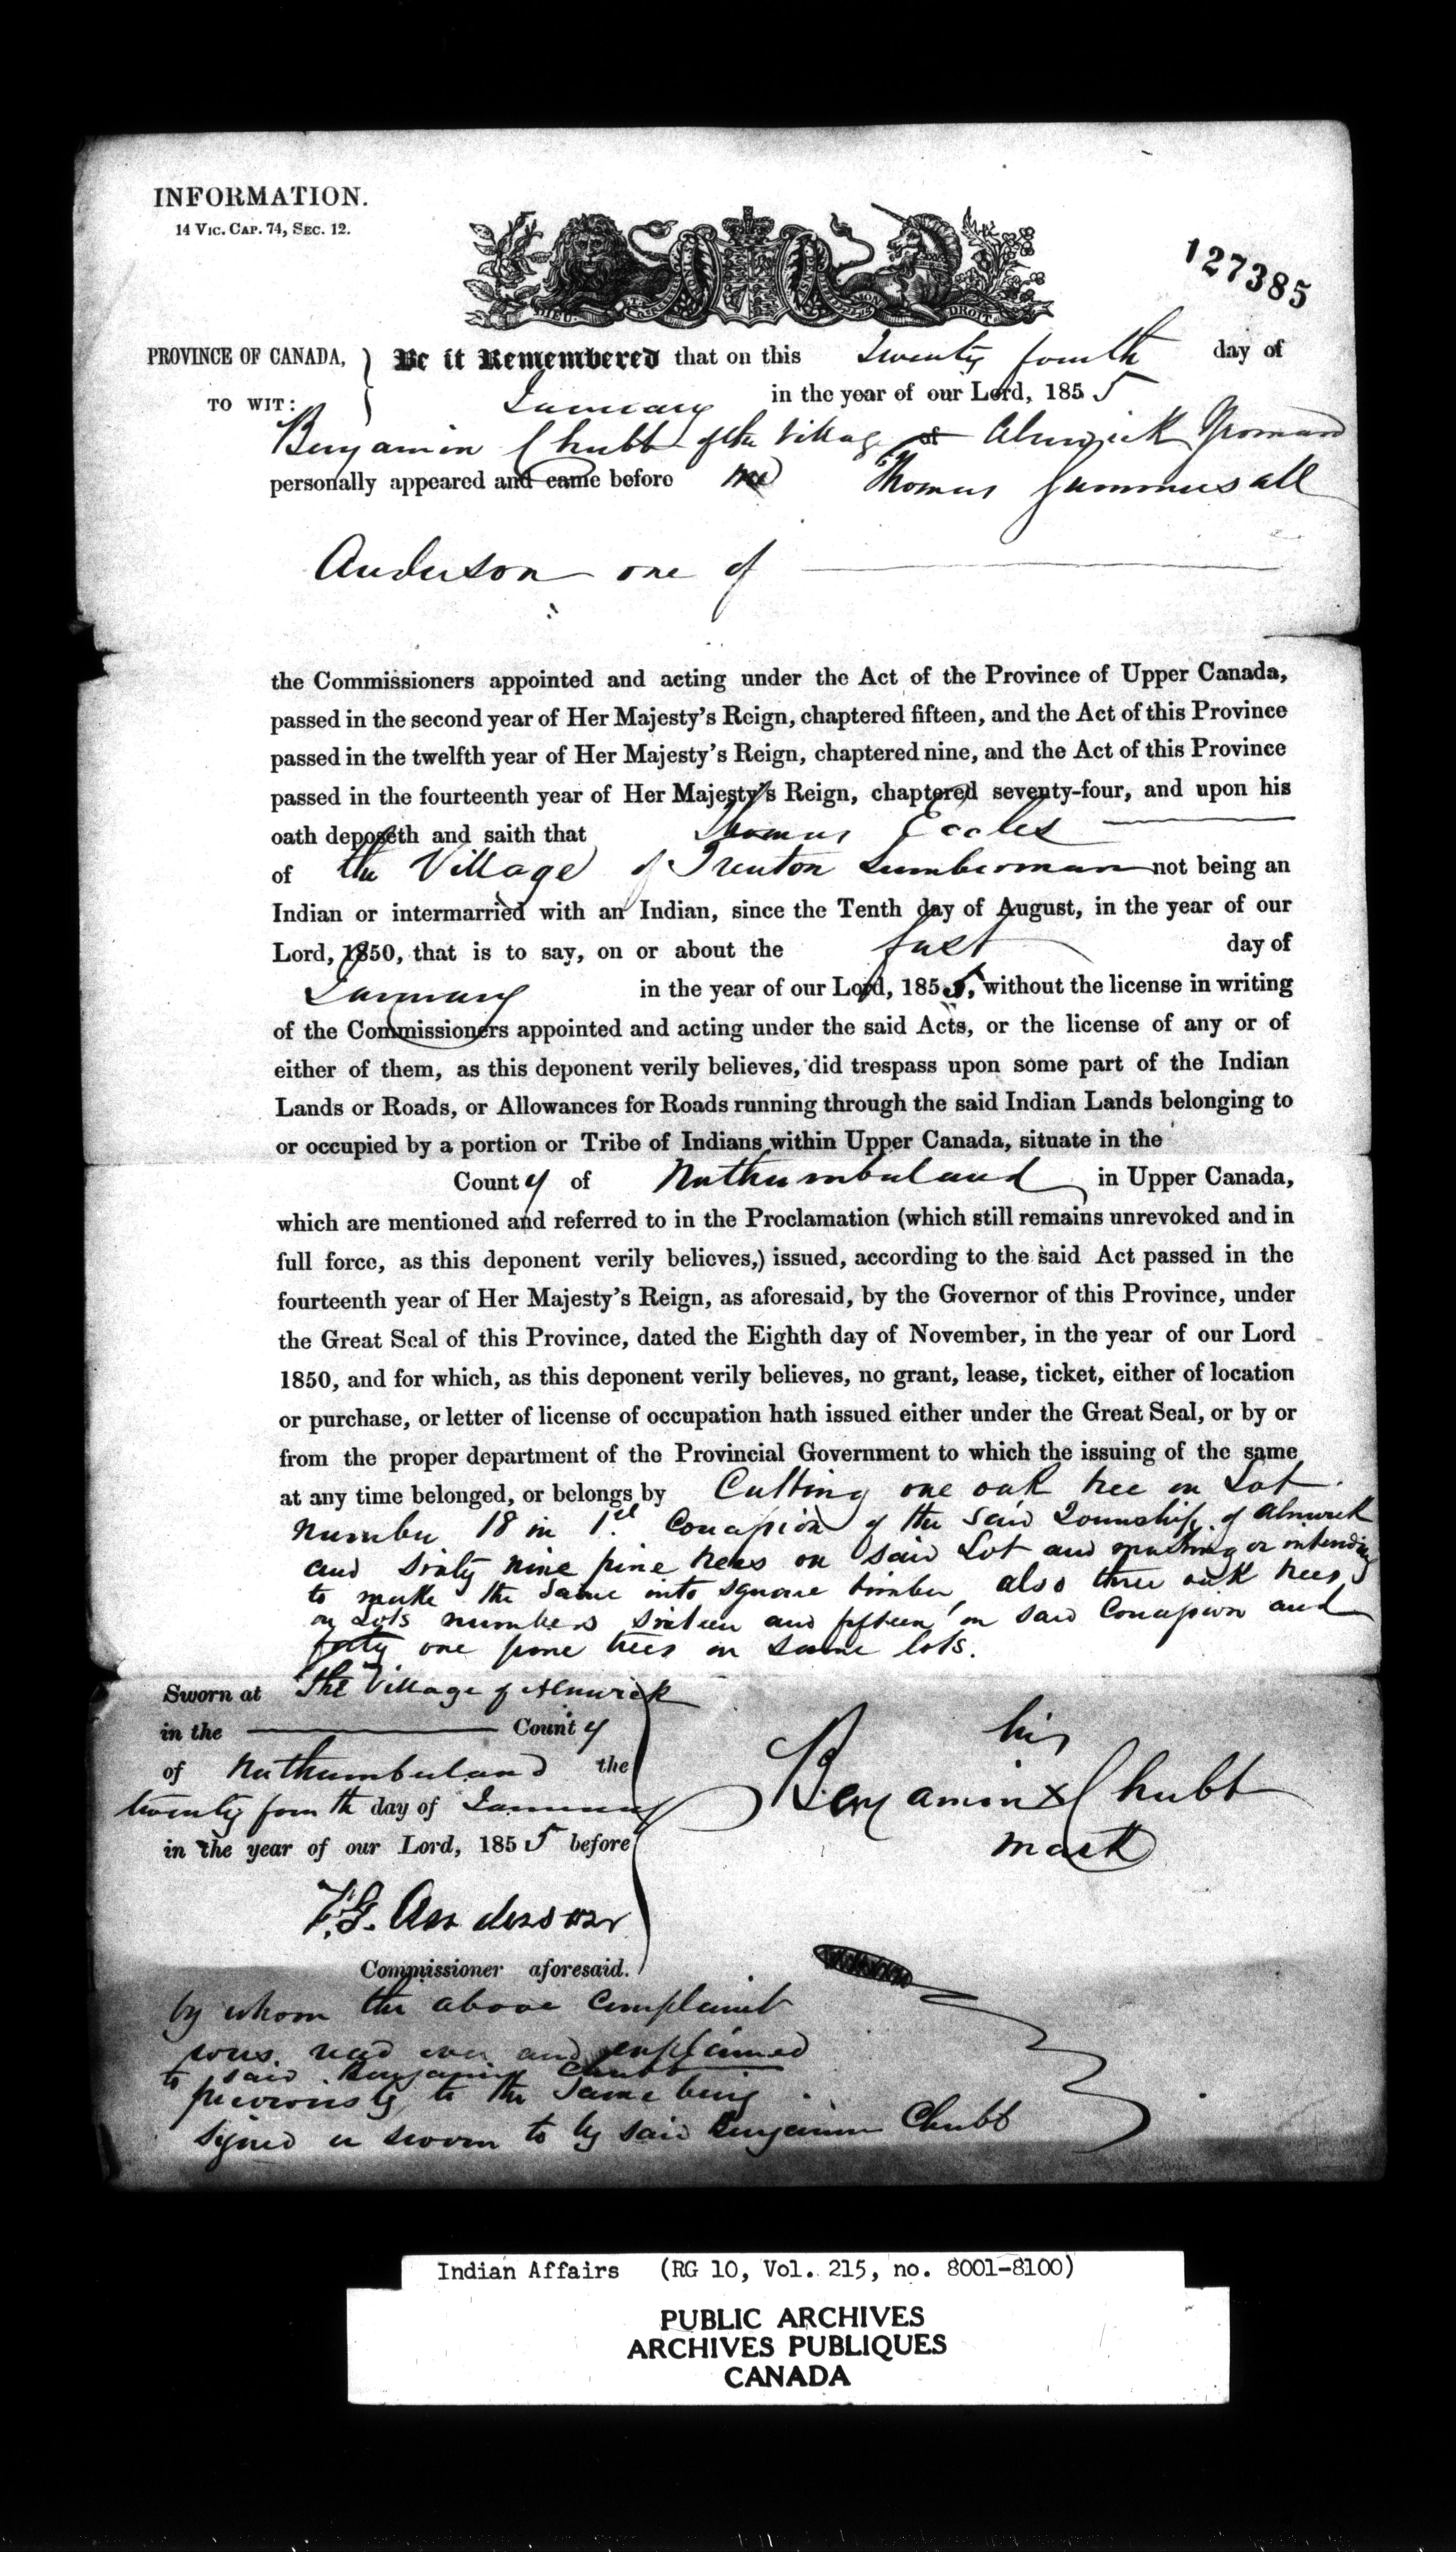 INFORMATION.
14 Vic. Cap. 74, Sec. 12.
127385
DIEU. ET MON DROIT
PROVINCE OF CANADA, Be it Remembered that on this Twenty fourth day of
TO WIT: January in the year of our Lord, 1855
Benjamin Chubb of the Village of Alnwick Yeoman
personally appeared and came before me Thomas Gummersall
Anderson one of
the Commissioners appointed and acting under the Act of the Province of Upper Canada,
passed in the second year of Her Majesty's Reign, chaptered fifteen, and the Act of this Province
passed in the twelfth year of Her Majesty's Reign, chaptered nine, and the Act of this Province
passed in the fourteenth year of Her Majesty's Reign, chaptered seventy-four, and upon his
oath deposeth and saith that Thomas Eccles
of the Village of Trenton Lumberman not being an
Indian or intermarried with an Indian, since the Tenth day of August, in the year of our
Lord, 1850, that is to say, on or about the first day of
January in the year of our Lord, 1855, without the license in writing
of the Commissioners appointed and acting under the said Acts, or the license of any or of
either of them, as this deponent verily believes, did trespass upon some part of the Indian
Lands or Roads, or Allowances for Roads running through the said Indian Lands belonging to
or occupied by a portion or Tribe of Indians within Upper Canada, situate in the
County of Northumberland in Upper Canada,
which are mentioned and referred to in the Proclamation (which still remains unrevoked and in
full force, as this deponent verily believes,) issued, according to the said Act passed in the
fourteenth year of Her Majesty's Reign, as aforesaid, by the Governor of this Province, under
the Great Seal of this Province, dated the Eighth day of November, in the year of our Lord
1850, and for which, as this deponent verily believes, no grant, lease, ticket, either of location
or purchase, or letter of license of occupation hath issued either under the Great Seal, or by or
from the proper department of the Provincial Government to which the issuing of the same
at any time belonged, or belongs by Cutting one oak tree on Lot
number 18 in 1st Concession of the said Township of Alnwick
and sixty nine pine trees on said Lot and making or intending
to make the same into square timber, also three oak trees
on Lots numbers sixteen and fifteen in said Concession and
forty one pine trees on same lots.
Sworn at The Village of Alnwick
in the County
of Northumberland the
twenty fourth day of January
in the year of our Lord, 1855 before
his
Benjamin x Chubb
mark
T.G. Anderson
Commissioner aforesaid.
by whom the above complaint
was read over and explained
to said Benjamin Chubb
previously to the same being
signed & sworn to by said Benjamin Chubb
Indian Affairs (RG 10, Vol. 215, no. 8001-8100)
PUBLIC ARCHIVES
ARCHIVES PUBLIQUES
CANADA